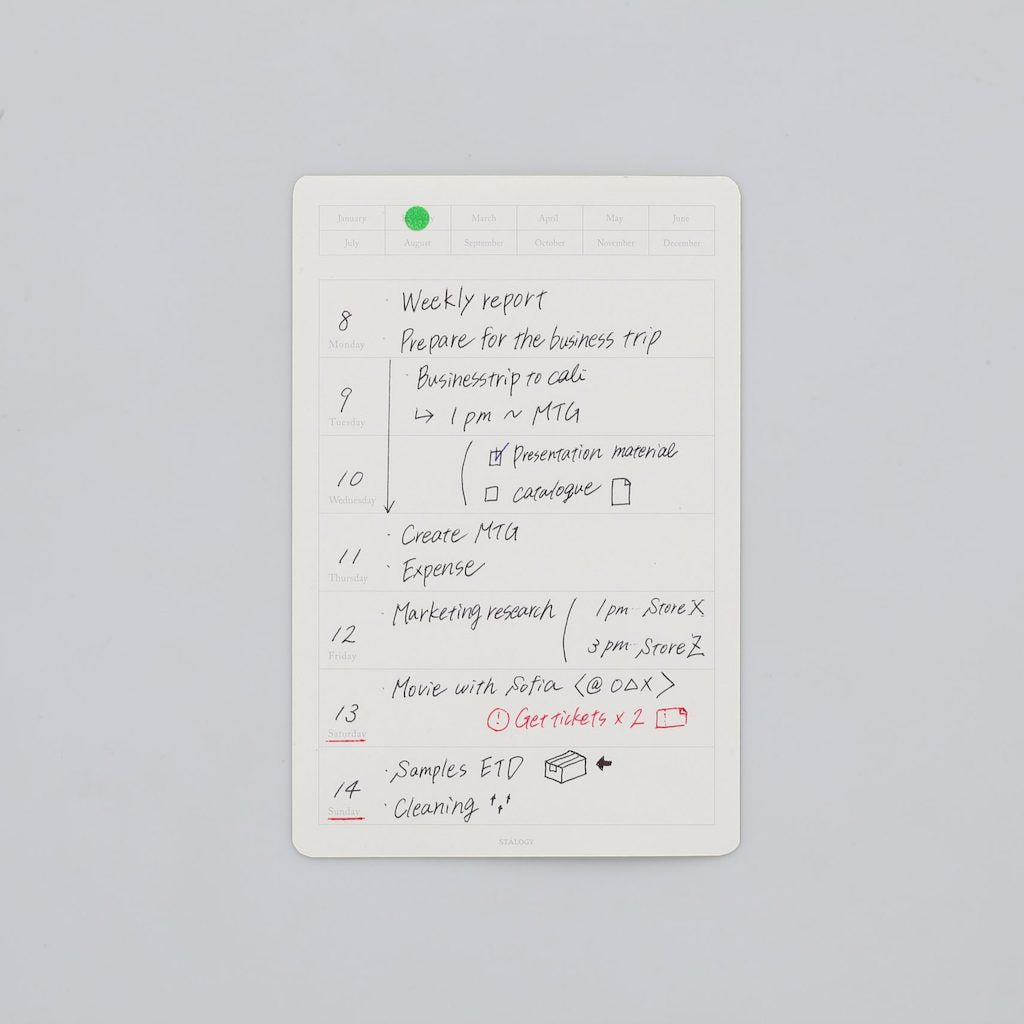 January February March April May June
July August September October November December
8 Monday
· Weekly report
· Prepare for the business trip
9 Tuesday
· Businesstrip to cali
↳ 1 pm ~ MTG
10 Wednesday
☑ Presentation material
☐ catalogue
11 Thursday
· Create MTG
· Expense
12 Friday
· Marketing research
1pm Store X
3pm Store Z
13 Saturday
· Movie with Sofia <@ O△X>
! Get tickets x 2
14 Sunday
· Samples ETD
· Cleaning
STÁLOGY